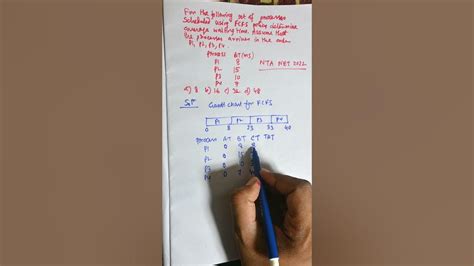 For the following set of processes
scheduled using FCFS police determine
average waiting time. Assume that
the processes arrives in the order
P1, P2, P3, P4
Process BT(ms)
P1 8
P2 15
P3 10
P4 7
NTA NET 2022
a) 8 b) 16 c) 32 d) 48
Sol Gantt chart for FCFS
P1 P2 P3 P4
0 8 23 33 40
Process AT BT CT TAT
P1 0 8 8
P2 0 15
P3 0
P4 0 7